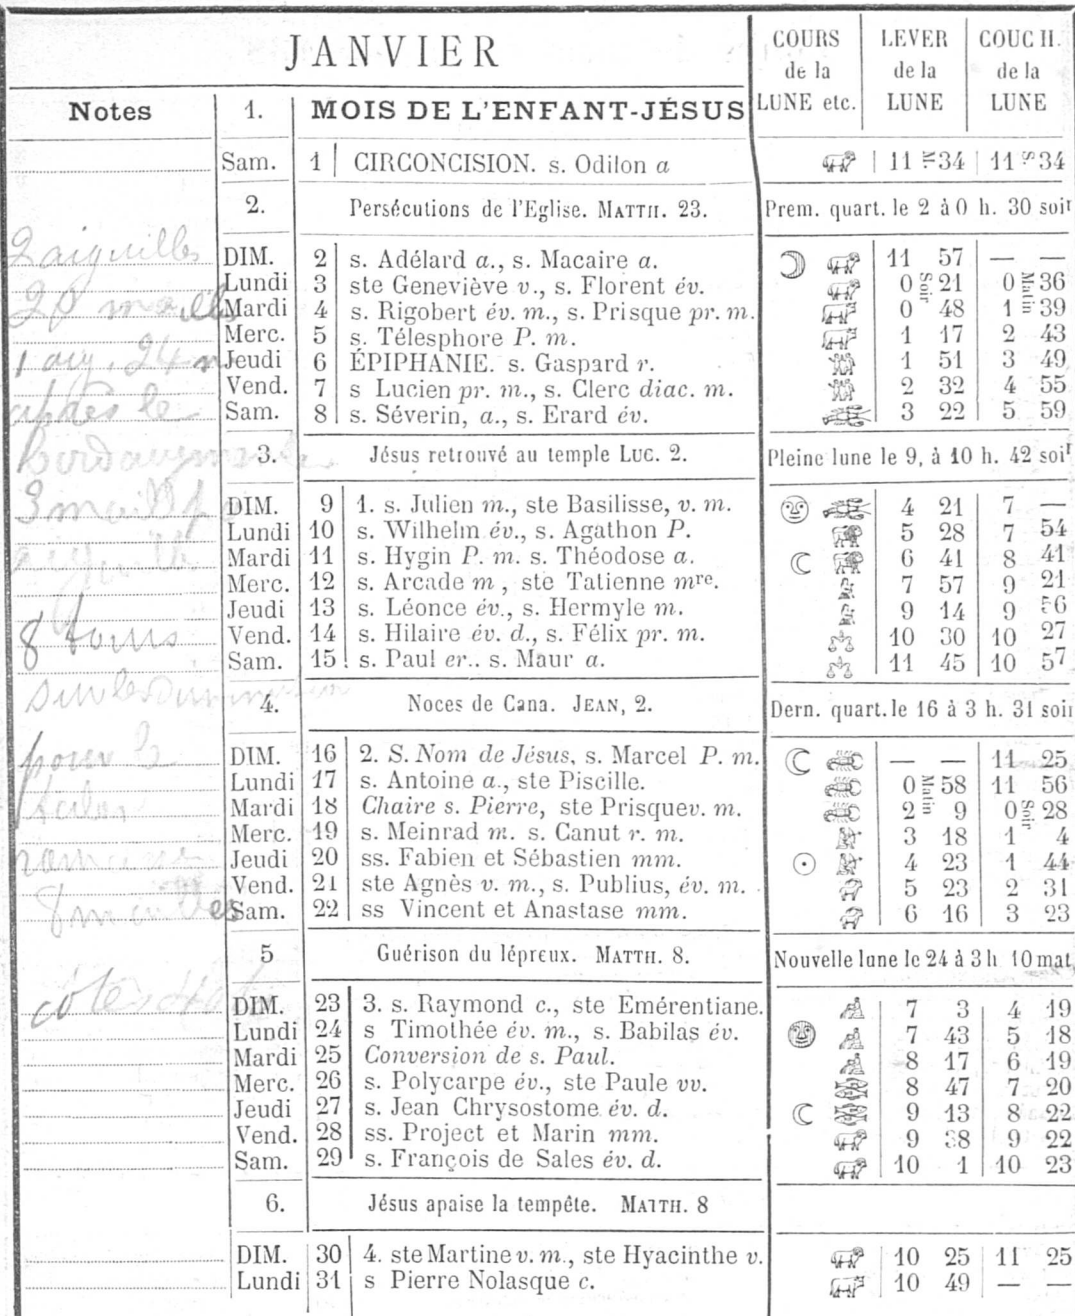 JANVIER
COURS de la LUNE etc.
LEVER de la LUNE
COUCH. de la LUNE
Notes 1. MOIS DE L'ENFANT-JÉSUS
Sam. 1 CIRCONCISION. s. Odilon a 11 M 34 11 S 34
2. Persécutions de l'Eglise. MATTH. 23. Prem. quart. le 2 à 0 h. 30 soir
2 aiguilles
DIM. 2 s. Adélard a., s. Macaire a. 11 57 — —
Lundi 3 ste Geneviève v., s. Florent év. 0 Soir 21 0 Matin 36
20 mailles
Mardi 4 s. Rigobert év. m., s. Prisque pr. m. 0 48 1 39
Merc. 5 s. Télesphore P. m. 1 17 2 43
1 aig. 24 m
Jeudi 6 ÉPIPHANIE. s. Gaspard r. 1 51 3 49
Vend. 7 s Lucien pr. m., s. Clerc diac. m. 2 32 4 55
après le
Sam. 8 s. Séverin, a., s. Erard év. 3 22 5 59
3. Jésus retrouvé au temple LUC. 2. Pleine lune le 9, à 10 h. 42 soir
3 maill
DIM. 9 1. s. Julien m., ste Basilisse, v. m. 4 21 7 —
Lundi 10 s. Wilhelm év., s. Agathon P. 5 28 7 54
Mardi 11 s. Hygin P. m. s. Théodose a. 6 41 8 41
Merc. 12 s. Arcade m, ste Tatienne mre. 7 57 9 21
Jeudi 13 s. Léonce év., s. Hermyle m. 9 14 9 56
8 tours
Vend. 14 s. Hilaire év. d., s. Félix pr. m. 10 30 10 27
Sam. 15 s. Paul er.. s. Maur a. 11 45 10 57
4. Noces de Cana. JEAN, 2. Dern. quart. le 16 à 3 h. 31 soir
pour le
DIM. 16 2. S. Nom de Jésus, s. Marcel P. m. — — 11 25
Lundi 17 s. Antoine a., ste Piscille. 0 Matin 58 11 56
talon
Mardi 18 Chaire s. Pierre, ste Prisquev. m. 2 9 0 Soir 28
Merc. 19 s. Meinrad m. s. Canut r. m. 3 18 1 4
Jeudi 20 ss. Fabien et Sébastien mm. 4 23 1 44
Vend. 21 ste Agnès v. m., s. Publius, év. m. 5 23 2 31
8 mailles
Sam. 22 ss Vincent et Anastase mm. 6 16 3 23
5 Guérison du lépreux. MATTH. 8. Nouvelle lune le 24 à 3 h 10 mat
côtes
DIM. 23 3. s. Raymond c., ste Emérentiane. 7 3 4 19
Lundi 24 s Timothée év. m., s. Babilas év. 7 43 5 18
Mardi 25 Conversion de s. Paul. 8 17 6 19
Merc. 26 s. Polycarpe év., ste Paule vv. 8 47 7 20
Jeudi 27 s. Jean Chrysostome év. d. 9 13 8 22
Vend. 28 ss. Project et Marin mm. 9 38 9 22
Sam. 29 s. François de Sales év. d. 10 1 10 23
6. Jésus apaise la tempête. MATTH. 8
DIM. 30 4. ste Martine v. m., ste Hyacinthe v. 10 25 11 25
Lundi 31 s Pierre Nolasque c. 10 49 — —